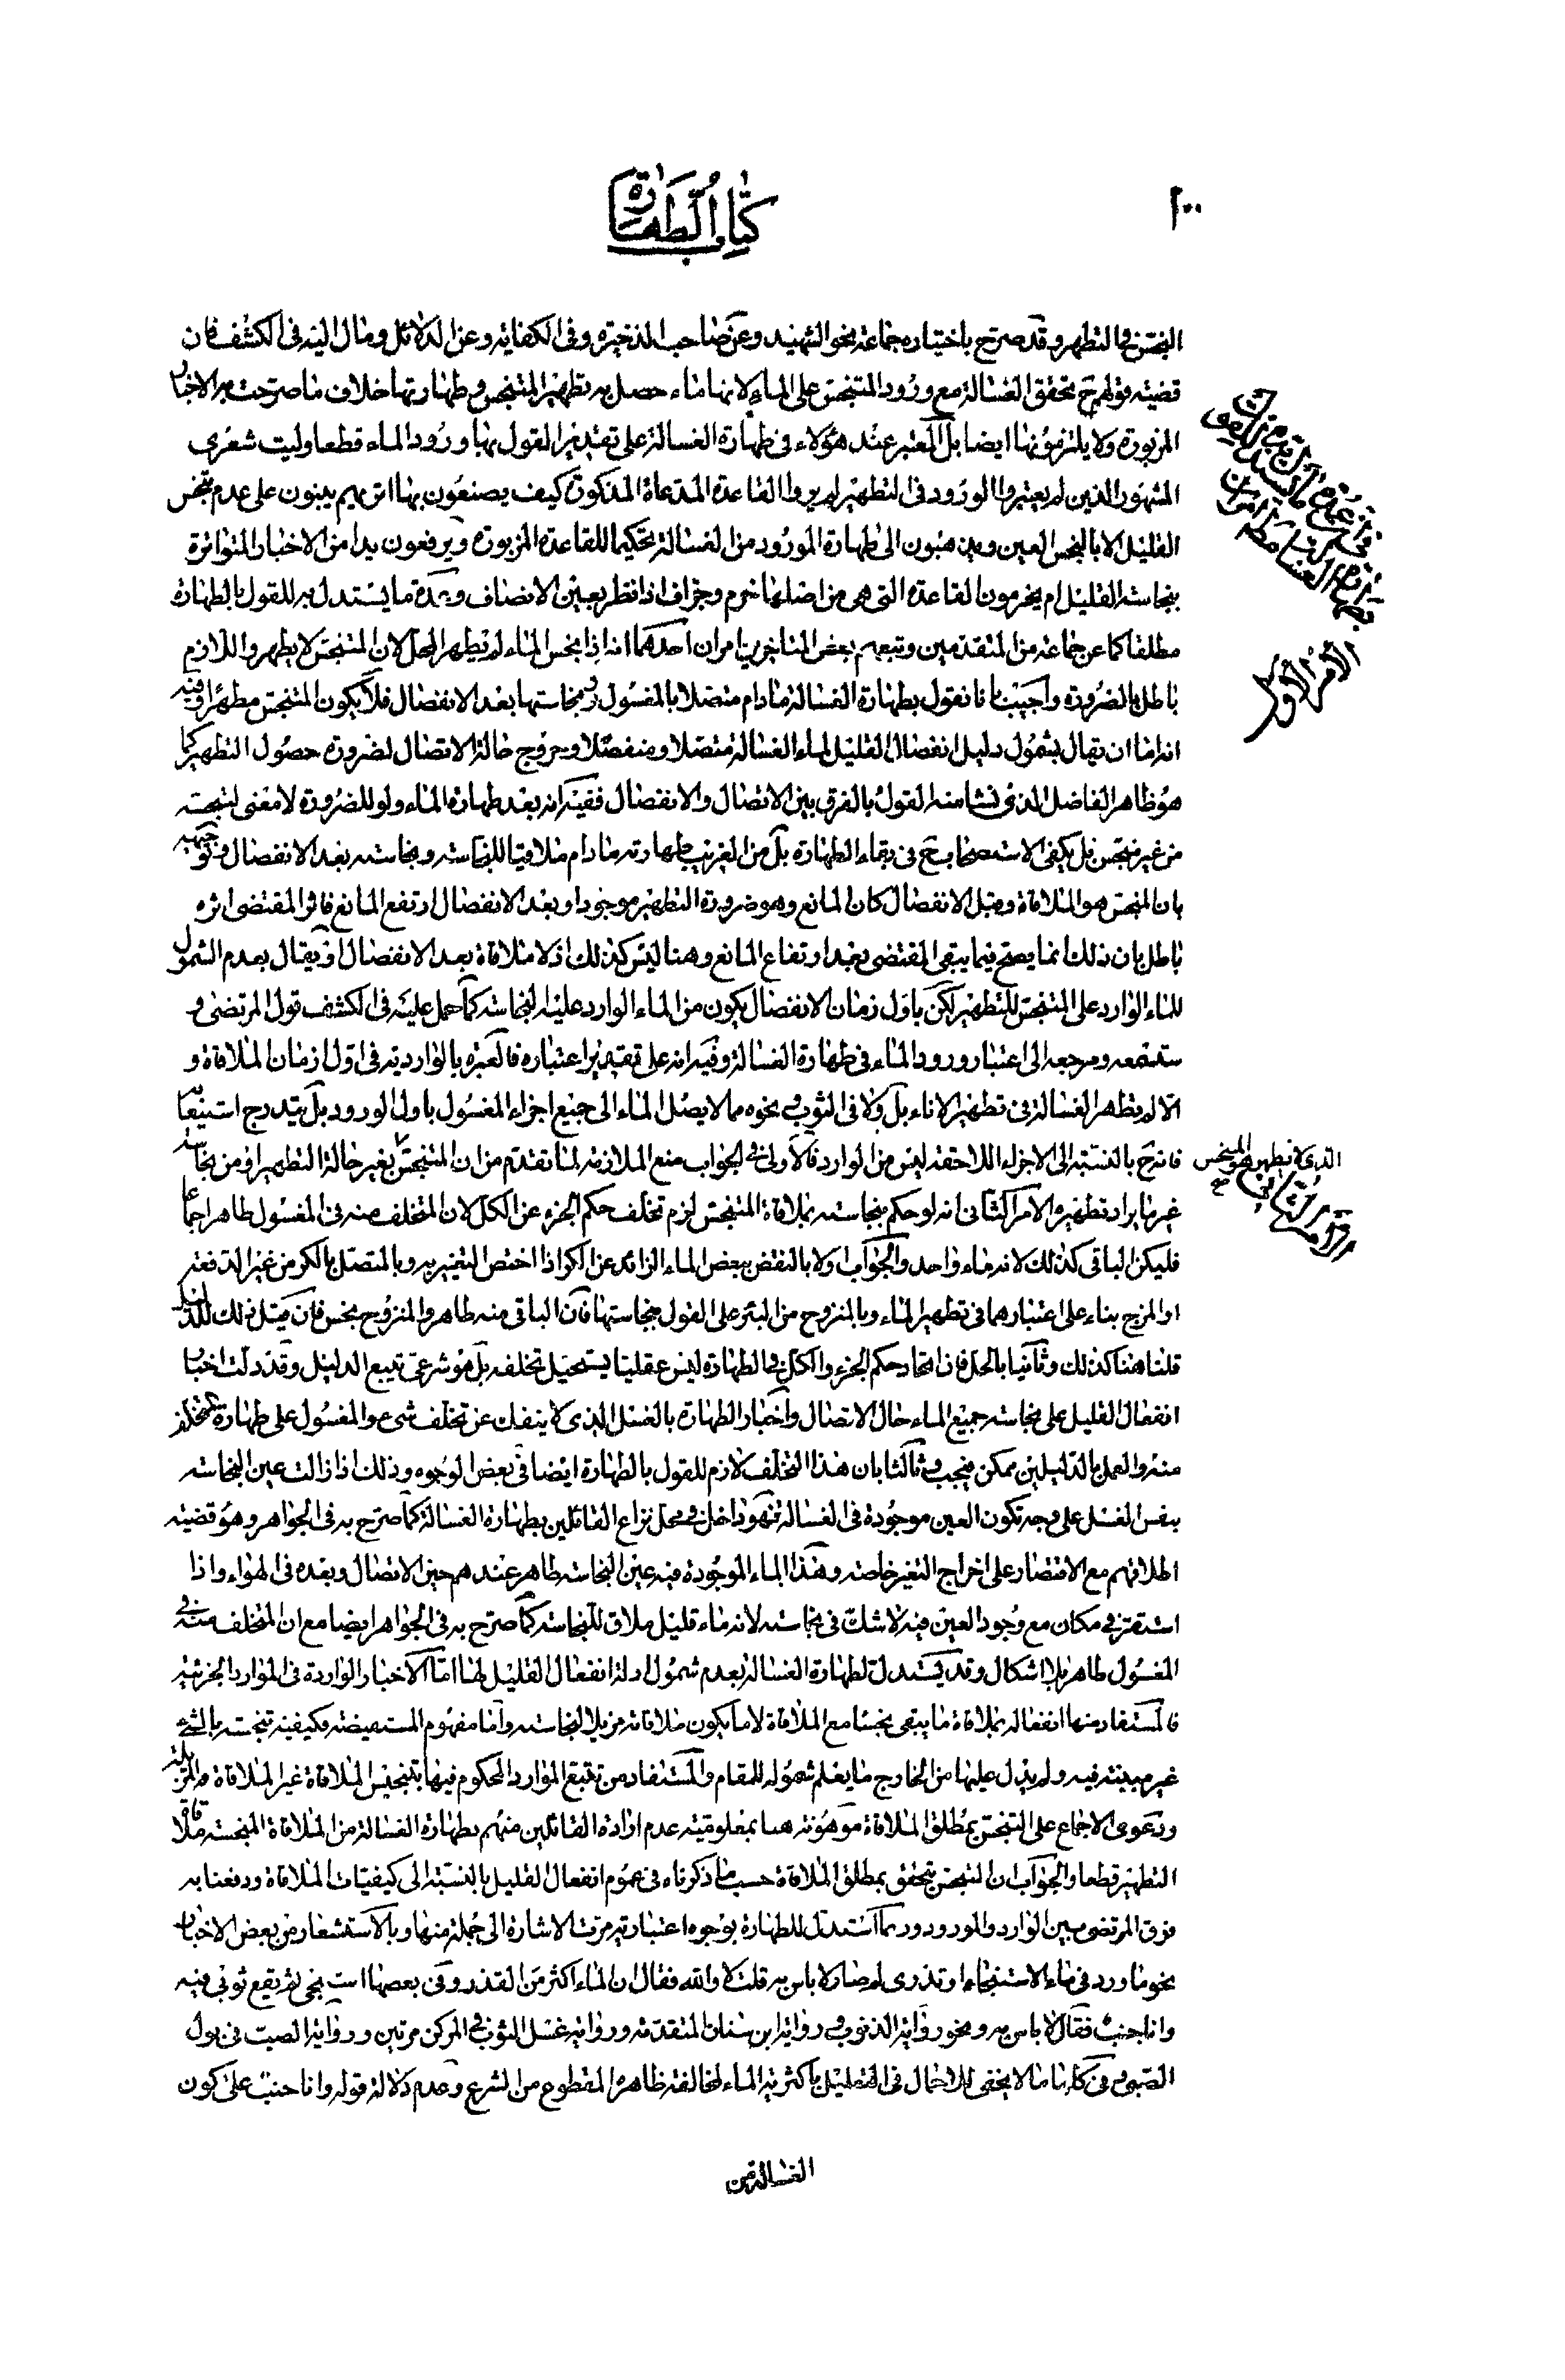 ٢٠٠
كتاب الطهارة
النص في التطهر وقد صرح باختياره جماعة نحو الشهيد وعن صاحب الذخيرة وفي الكفاية وعن الدلائل ومال اليه في الكشف فان
قضيته قولهم ح تحقق الغسالة مع ورود المتنجس على الماء لانها ماء حصل به تطهير المتنجس وطهارتها خلاف ما صرحت به الاخبار
المزبورة ولا يلتزمونها ايضا بل المعتبر عند هؤلاء في طهارة الغسالة على تقدير القول بها ورود الماء قطعا وليت شعري
المشهور الذين لم يعتبروا الورود في التطهير لم يروا القاعدة المدعاة المذكورة كيف يصنعون بها اتريهم يبنون على عدم تنجس
القليل الا بالنجس العين ويذهبون الى طهارة المورود من الغسالة تحكيما للقاعدة المزبورة ويرفعون يدا من الاخبار المتواترة
بنجاسة القليل ام يخرمون القاعدة التي هي من اصلها خرم وجزاف اذا نظر بعين الانصاف وعمدة ما يستدل به للقول بالطهارة
مطلقا كما عن جماعة من المتقدمين وتبعهم بعض المتاخرين امران احدهما انه اذا نجس الماء لم يطهر المحل لان المتنجس لا يطهر واللازم
باطل بالضرورة واجيب بانا نقول بطهارة الغسالة مادام متصلا بالمغسول وبنجاستها بعد الانفصال فلا يكون المتنجس مطهرا وفيه
انه اما ان يقال بشمول دليل انفعال القليل لماء الغسالة متصلا ومنفصلا وخروج حالة الاتصال لضرورة حصول التطهير كما
هو ظاهر الفاضل الذي نشا منه القول بالفرق بين الاتصال والانفصال ففيه انه بعد طهارة الماء ولو للضرورة لا معنى لتنجسه
من غير منجس بل يكفي الاستصحاب ح في بقاء الطهارة بل من الغريب طهارته مادام ملاقيا للنجاسة ونجاسته بعد الانفصال وتوجيهه
بان المنجس هو الملاقاة وقبل الانفصال كان المانع وهو ضرورة التطهير موجودا وبعد الانفصال ارتفع المانع فاثر المقتضي اثره
باطل بان ذلك انما يصح فيما يبقى المقتضي بعد ارتفاع المانع وهنا ليس كذلك اذ لا ملاقاة بعد الانفصال او يقال بعدم الشمول
للماء الوارد على المتنجس للتطهير لكن باول زمان الانفصال يكون من الماء الوارد عليه النجاسة كما حمل عليه في الكشف قول المرتضى و
ستسمعه ومرجعه الى اعتبار ورود الماء في طهارة الغسالة وفيه انه على تقدير اعتباره فالعبرة بالواردية في اول ازمان الملاقاة و
الا لم تطهر الغسالة في تطهير الاناء بل ولا في الثوب ونحوه مما لا يصل الماء الى جميع اجزاء المغسول باول الورود بل يتدرج استيعابه
فانه ح بالنسبة الى الاجزاء اللاحقة ليس من الوارد فالاولى في الجواب منع الملازمة لما تقدم من ان المتنجس بغير حالة التطهير او من نجاسة
غير ما يراد تطهيره الامر الثاني انه لو حكم بنجاسته بملاقاة المتنجس لزم تخلف حكم الجزء عن الكل لان المتخلف منه في المغسول طاهر اجماعا
فليكن الباقي كذلك لانه ماء واحد والجواب اولا بالنقض ببعض الماء الزائد عن الكر اذا اختص التغير به وبالمتصل بالكر من غير الدفعة
او المزج بناء على اعتبارهما في تطهير الماء وبالمنزوح من البئر على القول بنجاستها فان الباقي منه طاهر والمنزوح نجس فان قيل ذلك للدليل
قلنا هنا كذلك وثانيا بالحل فان اتحاد حكم الجزء والكل في الطهارة ليس عقليا يستحيل تخلفه بل هو شرعي تتبع الدليل وقد دلت اخبار
انفعال القليل على نجاسة جميع الماء حال الاتصال واخبار الطهارة بالغسل الذي لا ينفك عن تخلف شيء والمغسول على طهارة المتخلف
منه والعمل بالدليلين ممكن فيجب وثالثا بان هذا التخلف لازم للقول بالطهارة ايضا في بعض الوجوه وذلك اذا زالت عين النجاسة
بنفس الغسل على وجه تكون العين موجودة في الغسالة فهو داخل في محل نزاع القائلين بطهارة الغسالة كما صرح به في الجواهر وهو قضية
اطلاقهم مع الاقتصار على اخراج التغير خاصة وهذا الماء الموجودة فيه عين النجاسة طاهر عندهم حين الاتصال وبعده في الهواء واذا
استقر في مكان مع وجود العين فيه لا شك في نجاسته لانه ماء قليل ملاق للنجاسة كما صرح به في الجواهر ايضا مع ان المتخلف منه في
المغسول طاهر بلا اشكال وقد يستدل لطهارة الغسالة بعدم شمول ادلة انفعال القليل لها اما الاخبار الواردة في الموارد الجزئية
فالمستفاد منها انفعاله بملاقاة ما يبقى نجسا مع الملاقاة لا ما يكون ملاقاته مزيلا لنجاسته واما مفهوم المستفيضة فكيفية تنجسه بالشيء
غير مبينة فيه ولم يدل عليها من الخارج ما يعلم شموله للمقام والمستفاد من تتبع الموارد المحكوم فيها بتنجيس الملاقاة غير الملاقاة المزيلة
ودعوى الاجماع على التنجس بمطلق الملاقاة موهونة هنا بمعلومية عدم ارادة القائلين منهم بطهارة الغسالة من الملاقاة المنجسة ملاقاة
التطهير قطعا والجواب ان التنجس يتحقق بمطلق الملاقاة حسب ما ذكرناه في عموم انفعال القليل بالنسبة الى كيفيات الملاقاة ودفعنا به
فرق المرتضى بين الوارد والمورود وربما استدل للطهارة بوجوه اعتبارية مرت الاشارة الى جملة منها وبالاستشعار من بعض الاخبار
نحو ما ورد في ماء الاستنجاء او تدري لم صار لا باس به قلت لا والله فقال ان الماء اكثر من القذر وفي بعضها استنجي ثم يقع ثوبي فيه
وانا جنب فقال لا باس به ونحو رواية الذنوب ورواية ابن سنان المتقدمة ورواية غسل الثوب في المركن مرتين ورواية الصب في بول
الصبي وفي كلها ما لا يخفى للاجمال في التعليل باكثرية الماء لمخالفته ظاهره المقطوع من الشرع وعدم دلالة قوله وانا جنب على كون
الامر الاول
الذي لا يطهر هو المتنجس
الامر الثاني
الغسالة من